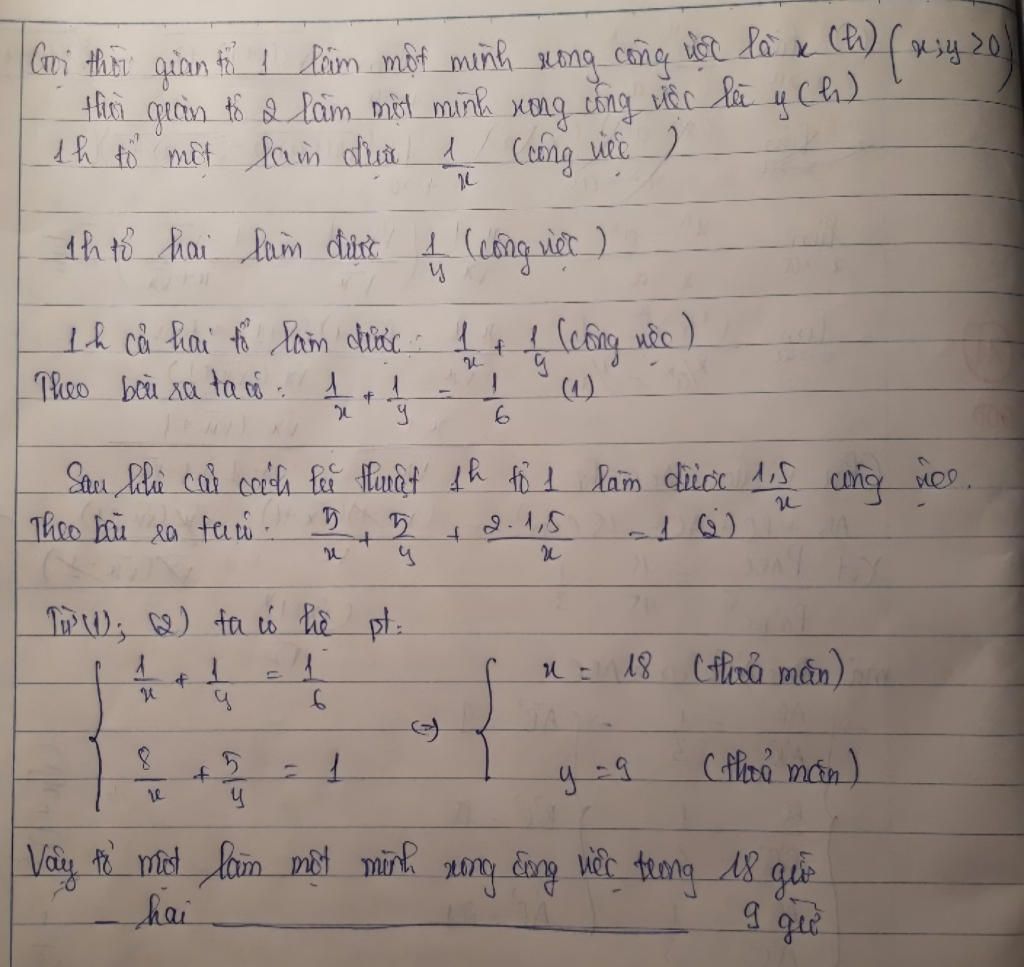 Gọi thời gian tổ 1 làm một mình xong công việc là x (h) (x;y>0)
thời gian tổ 2 làm một mình xong công việc là y (h)
1h tổ một làm được 1/x (công việc)
1h tổ hai làm được 1/y (công việc)
1h cả hai tổ làm được: 1/x + 1/y (công việc)
Theo bài ra ta có: 1/x + 1/y = 1/6 (1)
Sau khi cải cách kĩ thuật 1h tổ 1 làm được 1,5/x công việc.
Theo bài ra ta có: 5/x + 5/y + 2.1,5/x = 1 (2)
Từ (1); (2) ta có hệ pt:
{ 1/x + 1/y = 1/6 (=) { x = 18 (thoả mãn)
8/x + 5/y = 1 y = 9 (thoả mãn)
Vậy tổ một làm một mình xong công việc trong 18 giờ
_ hai _____ 9 giờ